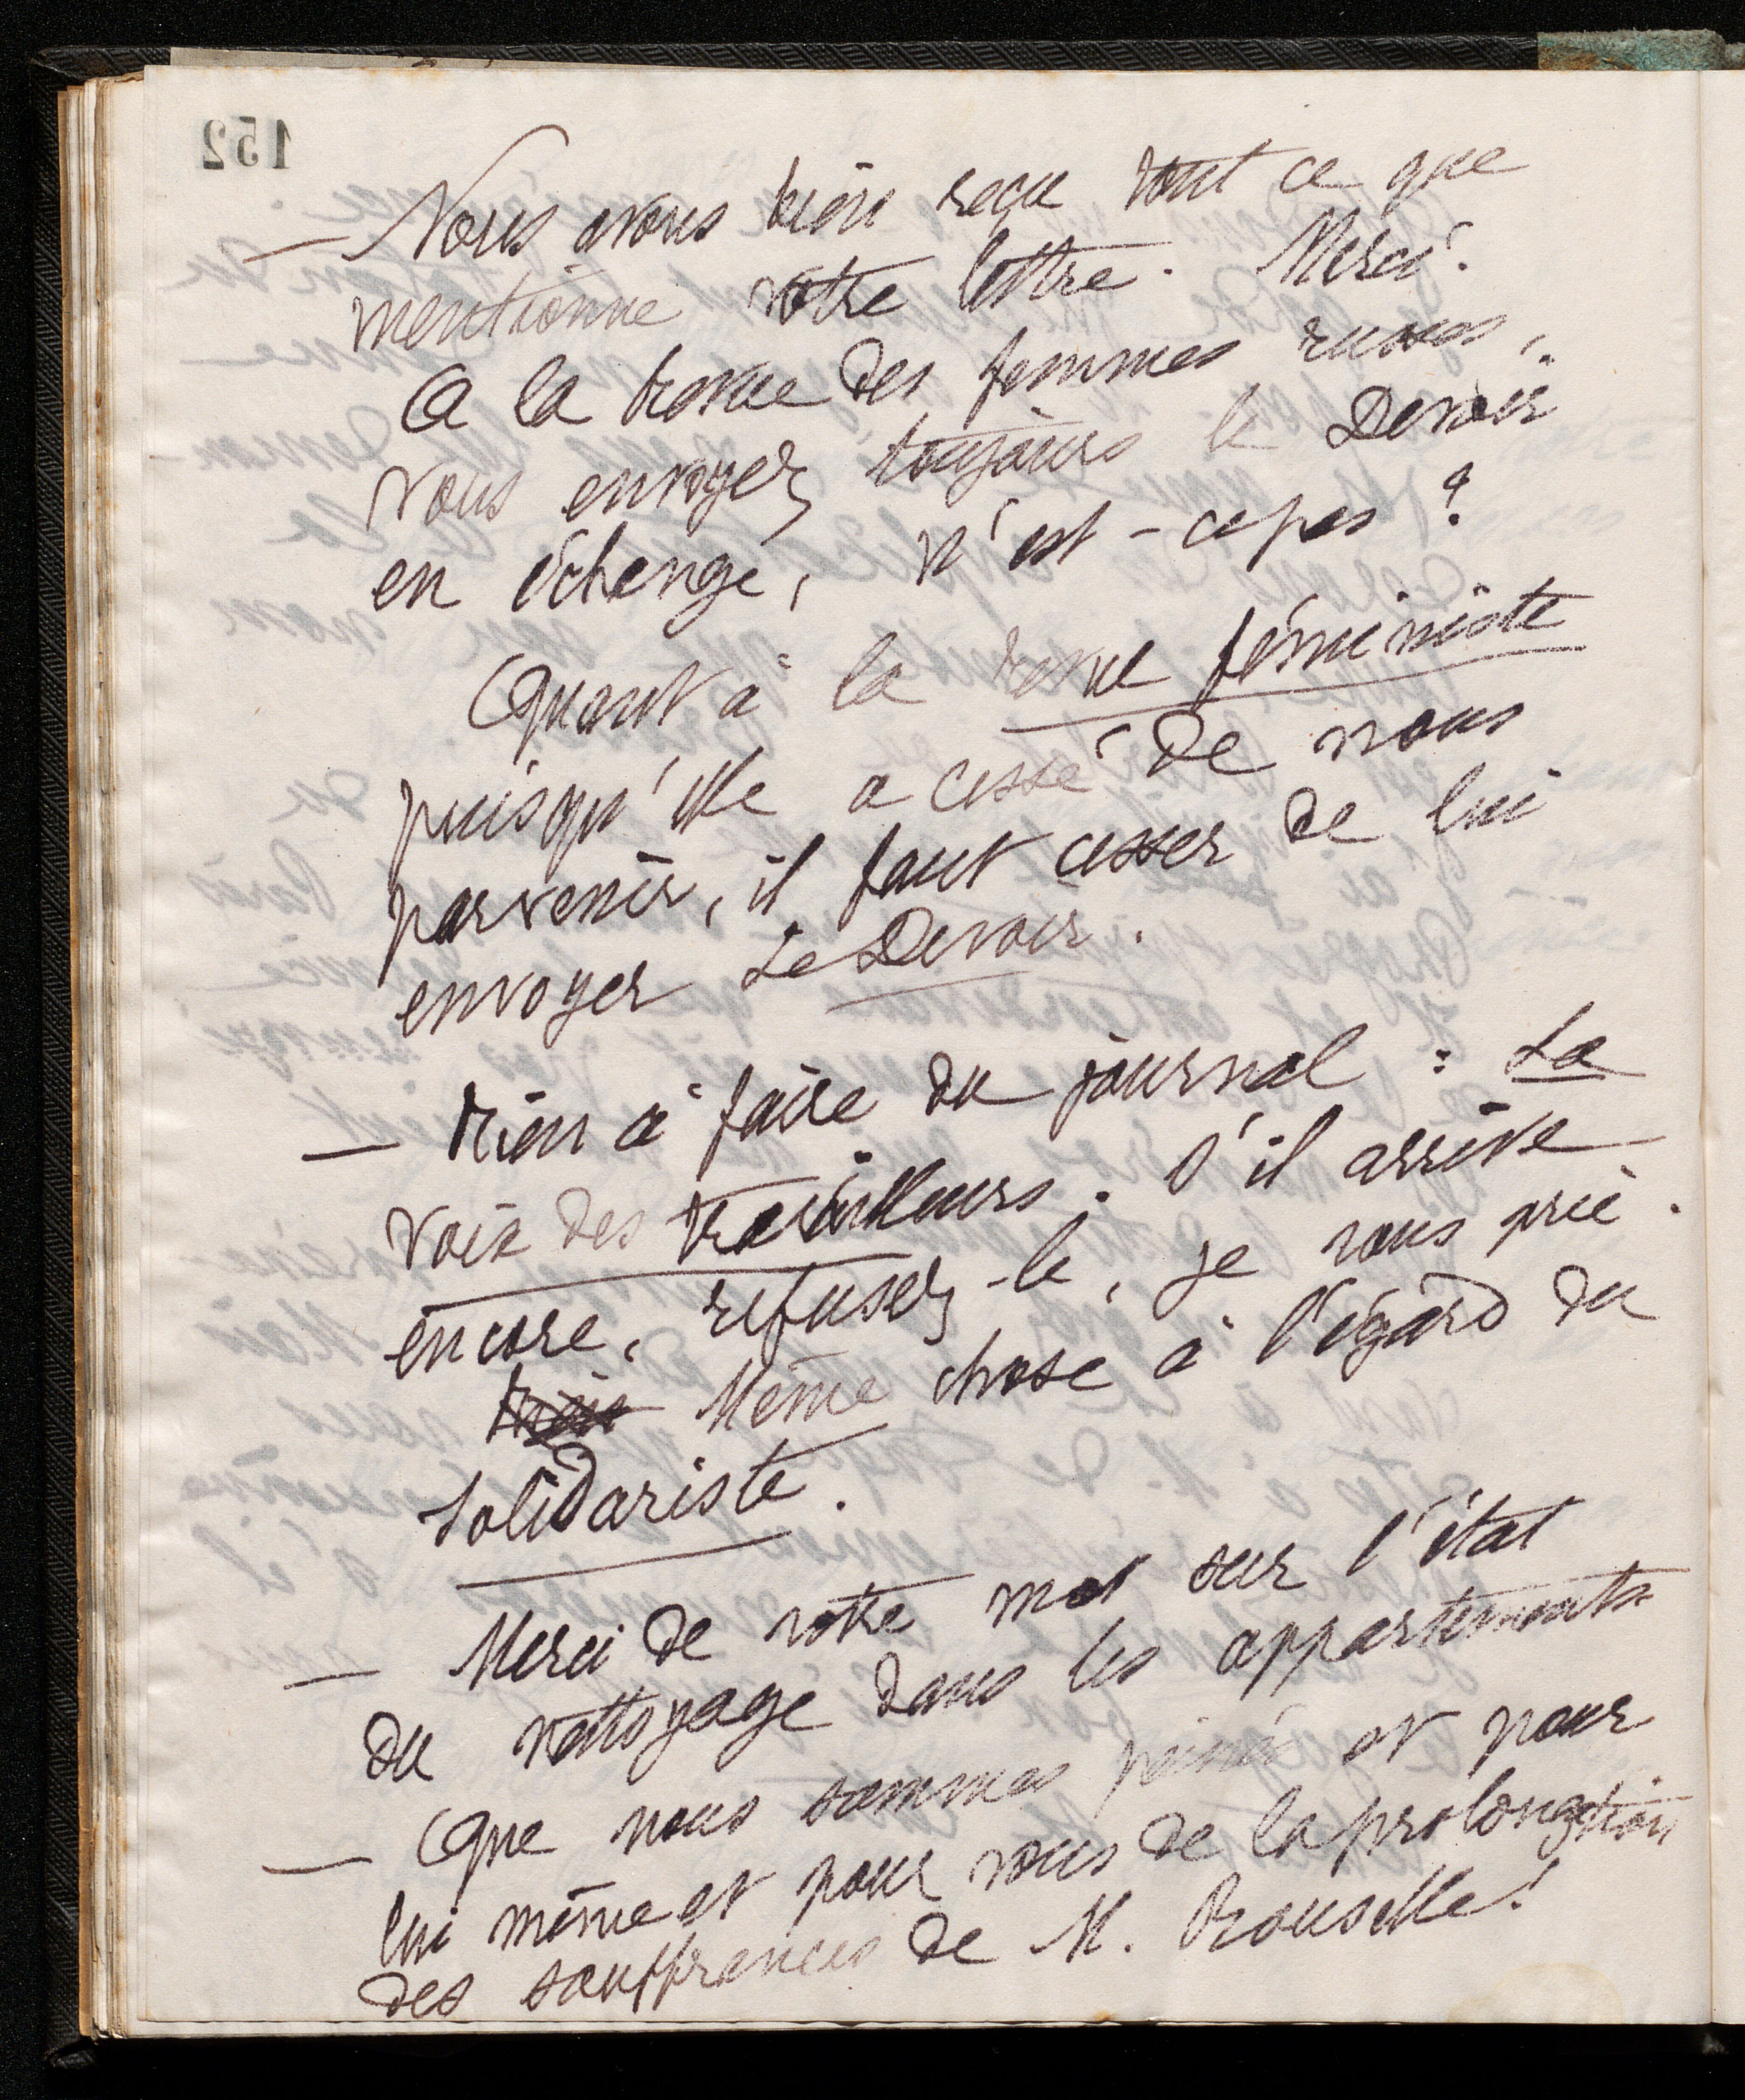 152
— Nous avons bien reçu tout ce que
mentionne votre lettre. Merci.
A la revue des femmes russes,
vous envoyez toujours le Devoir
en échange, n'est-ce pas ?
Quant à la revue féministe
puisqu'elle a cessé de nous
parvenir, il faut cesser de lui
envoyer Le Devoir.
— Rien à faire du journal : La
voix des travailleurs. S'il arrive
encore, refusez-le, je vous prie.
Même chose à l'égard du
Solidariste.
— Merci de votre mot sur l'état
du nettoyage dans les appartements
— Que nous sommes peinés et pour
lui même et pour vous de la prolongation
des souffrances de M. Rouselle!